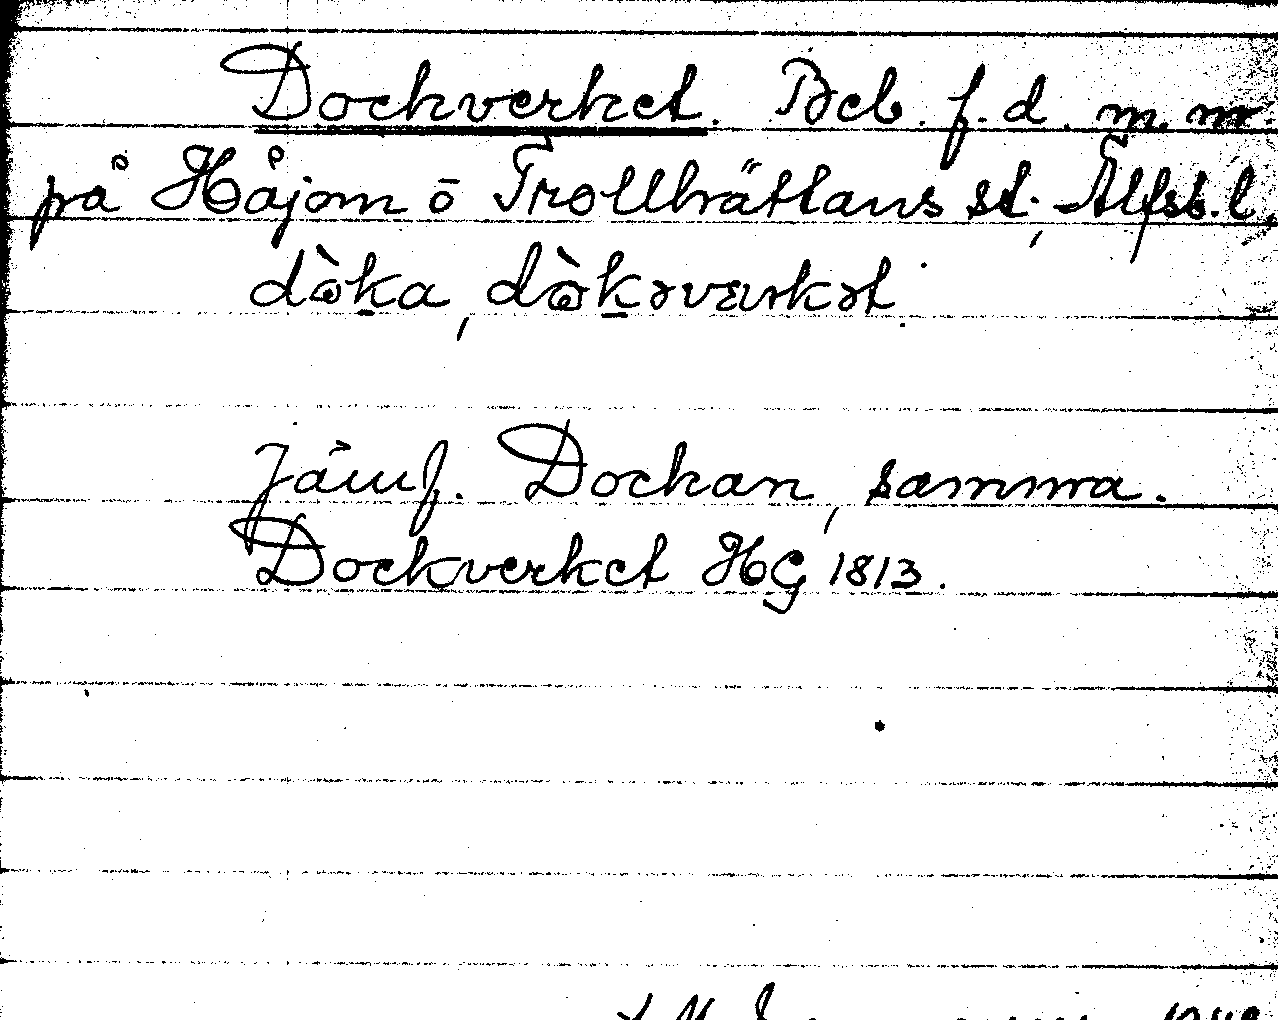 Dockverket. Beb. f. d. m. m.
på Håjom ö Trollhättans st., Älfsb. l.
dὰka, dὰkəværkət.
Jämf. Dockan, samma.
Dockverket HG 1813.